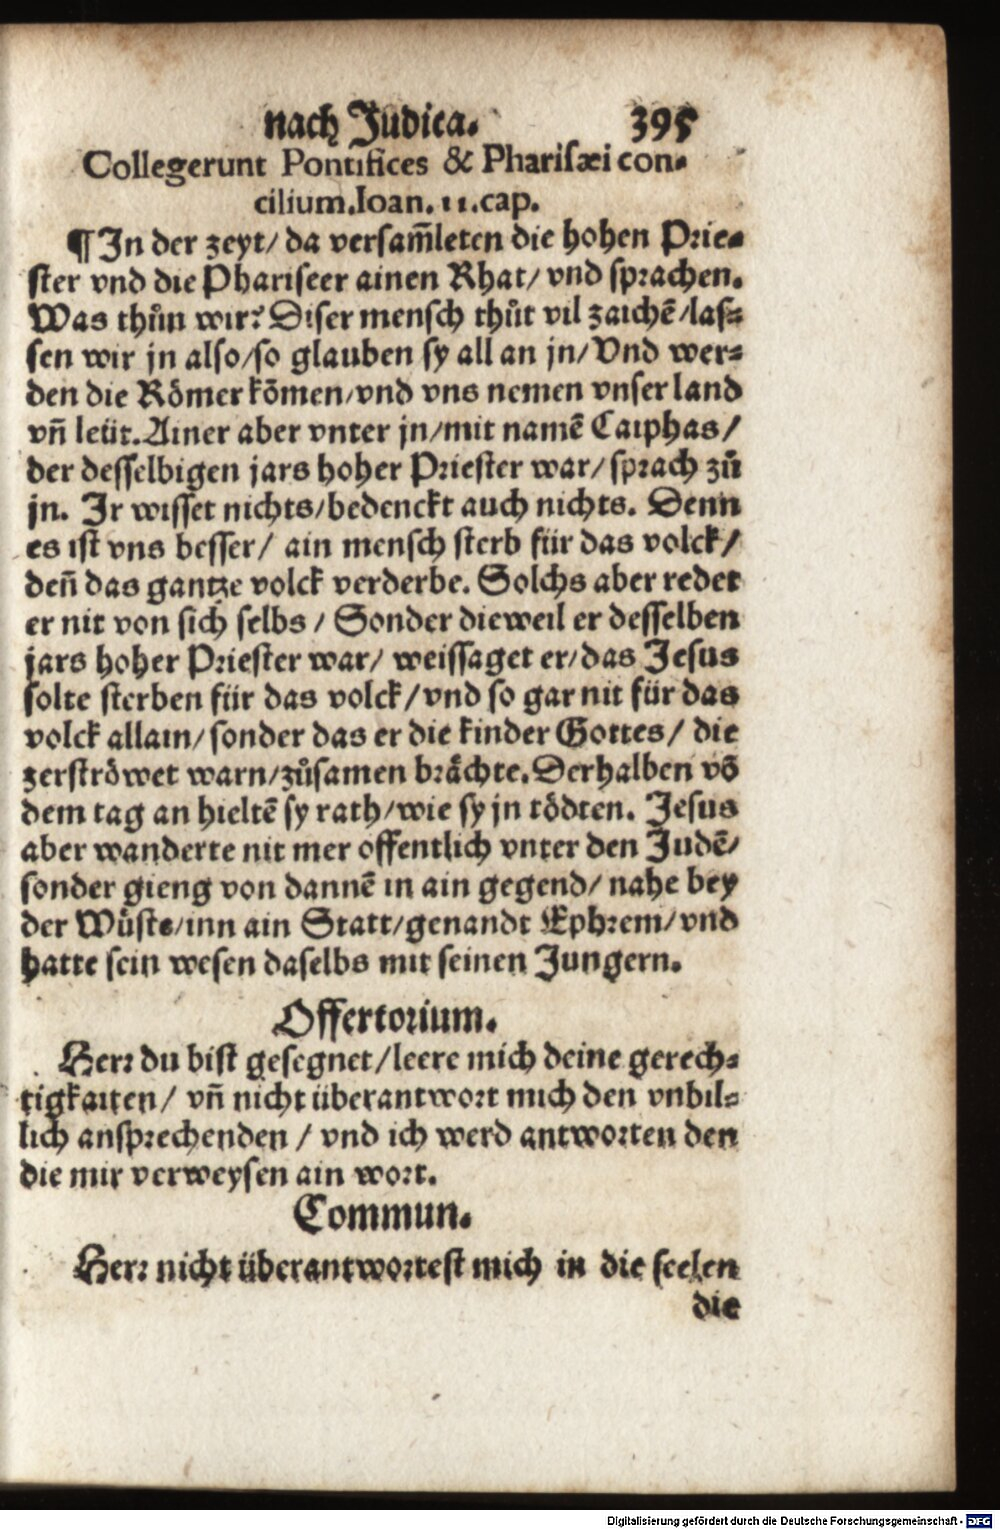 nach Judica. 395
Collegerunt Pontifices & Pharisæi con-
cilium. Ioan. 11. cap.
¶ In der zeyt/ da versam̃leten die hohen Prie-
ster vnd die Phariseer ainen Rhat/ vnd sprachen.
Was thůn wir? Diser mensch thůt vil zaichẽ/ las-
sen wir jn also/ so glauben sy all an jn/ Vnd wer-
den die Römer kõmen/ vnd vns nemen vnser land
vñ leüt. Ainer aber vnter jn/ mit namẽ Caiphas/
der desselbigen jars hoher Priester war/ sprach zů
jn. Ir wisset nichts/ bedenckt auch nichts. Denn
es ist vns besser/ ain mensch sterb für das volck/
deñ das gantze volck verderbe. Solchs aber redet
er nit von sich selbs / Sonder dieweil er desselben
jars hoher Priester war/ weissaget er/ das Jesus
solte sterben für das volck/ vnd so gar nit für das
volck allain/ sonder das er die kinder Gottes/ die
zerströwet warn/ zůsamen brächte. Derhalben võ
dem tag an hieltẽ sy rath/ wie sy jn tödten. Jesus
aber wanderte nit mer offentlich vnter den Judẽ/
sonder gieng von dannẽ in ain gegend/ nahe bey
der Wüste/ inn ain Statt/ genandt Ephrem/ vnd
hatte sein wesen daselbs mit seinen Jungern.
Offertorium.
Herr du bist gesegnet/ leere mich deine gerech-
tigkaiten/ vñ nicht überantwort mich den vnbil-
lich ansprechenden / vnd ich werd antworten den
die mir verweysen ain wort.
Commun.
Herr nicht überantwortest mich in die seelen
die
Digitalisierung gefördert durch die Deutsche Forschungsgemeinschaft - DFG